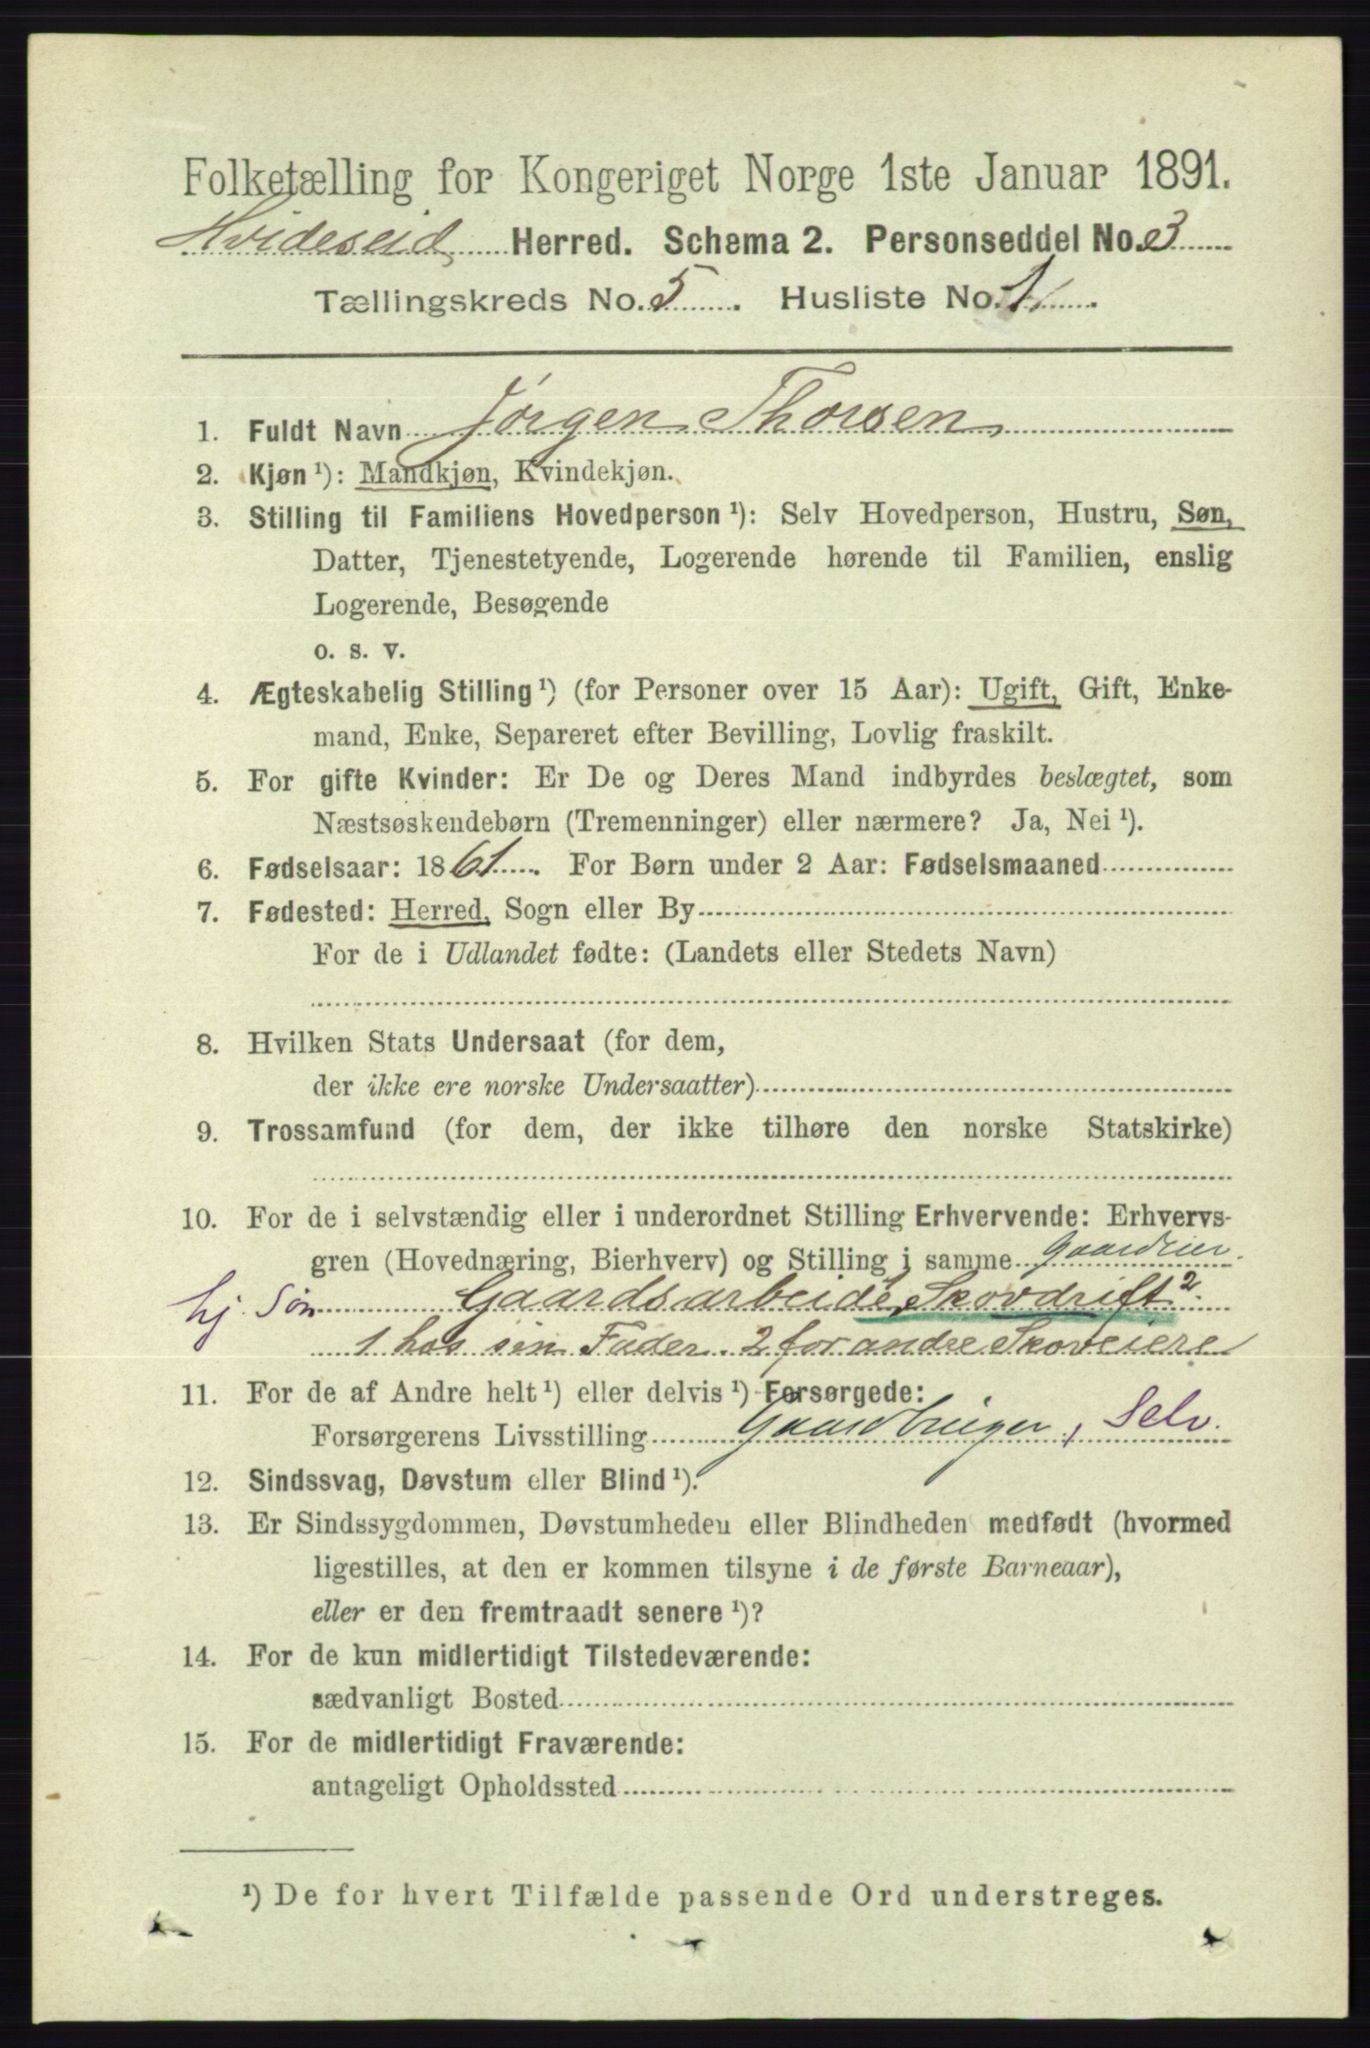 Folketælling for Kongeriget Norge 1ste Januar 1891.
Hvideseid Herred. Schema 2. Personseddel No. 3
Tællingskreds No. 5. Husliste No. 1.
1. Fuldt Navn Jørgen Thorsen
2. Kjøn ¹): Mandkjøn, Kvindekjøn.
3. Stilling til Familiens Hovedperson ¹): Selv Hovedperson, Hustru, Søn,
Datter, Tjenestetyende, Logerende hørende til Familien, enslig
Logerende, Besøgende
o. s. v.
4. Ægteskabelig Stilling ¹) (for Personer over 15 Aar): Ugift, Gift, Enke-
mand, Enke, Separeret efter Bevilling, Lovlig fraskilt.
5. For gifte Kvinder: Er De og Deres Mand indbyrdes beslægtet, som
Næstsøskendebørn (Tremenninger) eller nærmere? Ja, Nei ¹).
6. Fødselsaar: 1861. For Børn under 2 Aar: Fødselsmaaned
7. Fødested: Herred, Sogn eller By
For de i Udlandet fødte: (Landets eller Stedets Navn)
8. Hvilken Stats Undersaat (for dem,
der ikke ere norske Undersaatter)
9. Trossamfund (for dem, der ikke tilhøre den norske Statskirke)
10. For de i selvstændig eller i underordnet Stilling Erhvervende: Erhvervs-
gren (Hovednæring, Bierhverv) og Stilling i samme Gaardeier.
hj. Søn Gaardsarbeide, ¹ Skovdrift ².
1 hos sin Fader. 2 for andre Skoveiere
11. For de af Andre helt ¹) eller delvis ¹) Forsørgede:
Forsørgerens Livsstilling Gaardbruger, Selv.
12. Sindssvag, Døvstum eller Blind ¹).
13. Er Sindssygdommen, Døvstumheden eller Blindheden medfødt (hvormed
ligestilles, at den er kommen tilsyne i de første Barneaar),
eller er den fremtraadt senere ¹)?
14. For de kun midlertidigt Tilstedeværende:
sædvanligt Bosted
15. For de midlertidigt Fraværende:
antageligt Opholdssted
¹) De for hvert Tilfælde passende Ord understreges.